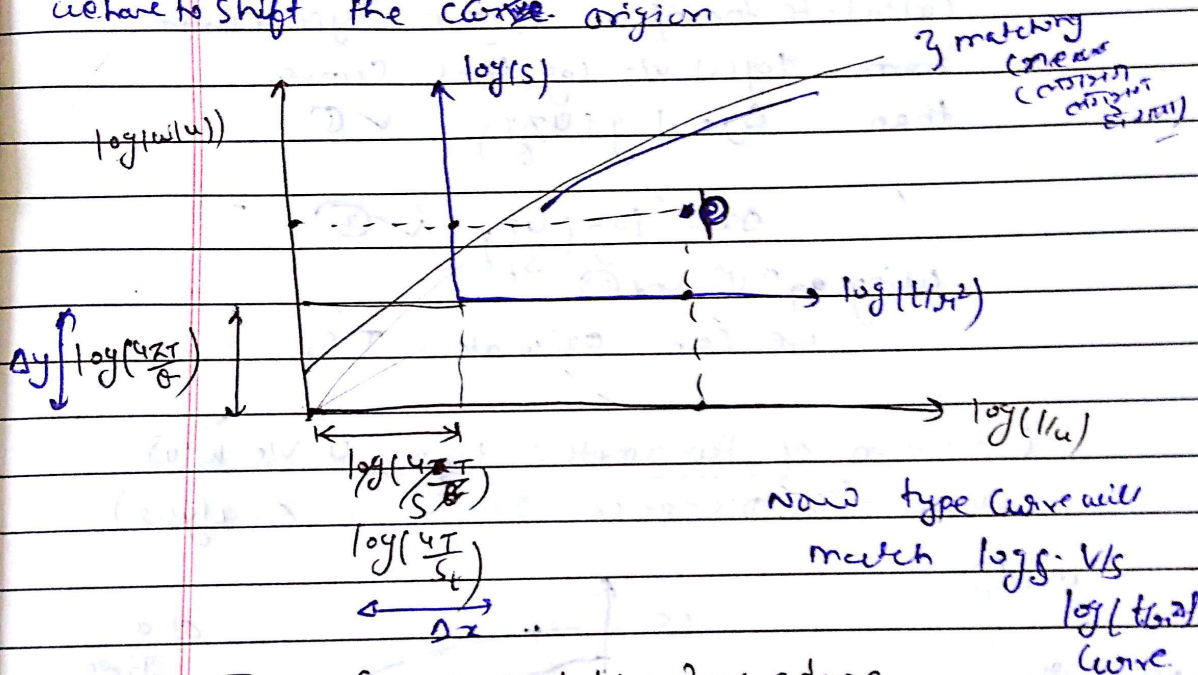 we have to shift the curve origion
log(s)
} matching
(mean
लगभग
लगभग
log(w(u))
P
log(t/r²)
Δy
log(4πT/Q)
log(1/u)
log(4T/S
log(4T/St)
Δx
Now type curve will
match log s v/s
log(t/r²)
curve